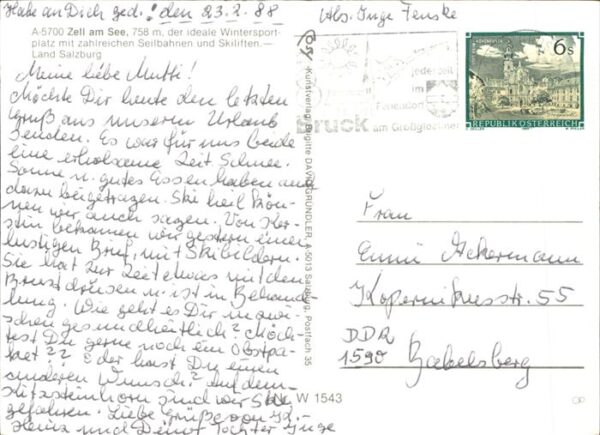 Habe an Dich ged.! den 23.2.88
Abs. Inge Fenske
A-5700 Zell am See, 758 m, der ideale Wintersport-
platz mit zahlreichen Seilbahnen und Skiliften.—
Land Salzburg
Meine liebe Mutti!
Möchte Dir heute den letzten
Gruß aus unserem Urlaub
senden. Es war für uns beide
eine erholsame Zeit Schnee.
Sonne u. gutes Essen haben auch
dazu beigetragen. Ski heil kön-
nen wir auch sagen. Von Ker-
stin bekamen wir gestern einen
lustigen Brief, mit Skibildern.
Sie hat zur Zeit etwas mit den
Brustdrüsen u. ist in Behand-
lung. Wie geht es Dir inzwi-
schen gesundheitlich? Möch-
test Du gerne noch ein Obstpa-
ket?? Oder hast Du einen
anderen Wunsch? Auf dem
Kitzsteinhorn sind wir Ski
gefahren. Liebe Grüße von
Heinz und Deiner Tochter Inge
Kunstverlag Brigitte DAVID-GRÜNDLER A-5013 Salzburg, Postfach 35
W 1543
jederzeit
im
Feriendorf
Bruck am Großglockner
6s
REPUBLIK ÖSTERREICH
Frau
Emmi Ackermann
Kopernikusstr. 55
DDR
1590 Babelsberg